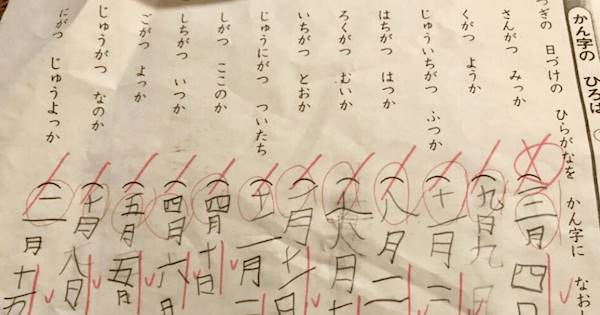 かん字の ひろば
つぎの 日づけの ひらがなを かん字に なおし
さんがつ みっか (三月 四
くがつ ようか (九日 九日
じゅういちがつ ふつか (十一月 二
はちがつ はつか (八月 二
ろくがつ むいか (六月
いちがつ とおか (一月 十一
じゅうにがつ ついたち (十二月 二
しがつ ここのか (四月 十日
しちがつ いつか (四日 六日
ごがつ よっか (五月 五日
じゅうがつ なのか (十月 八日
にがつ じゅうよっか (二月 十五